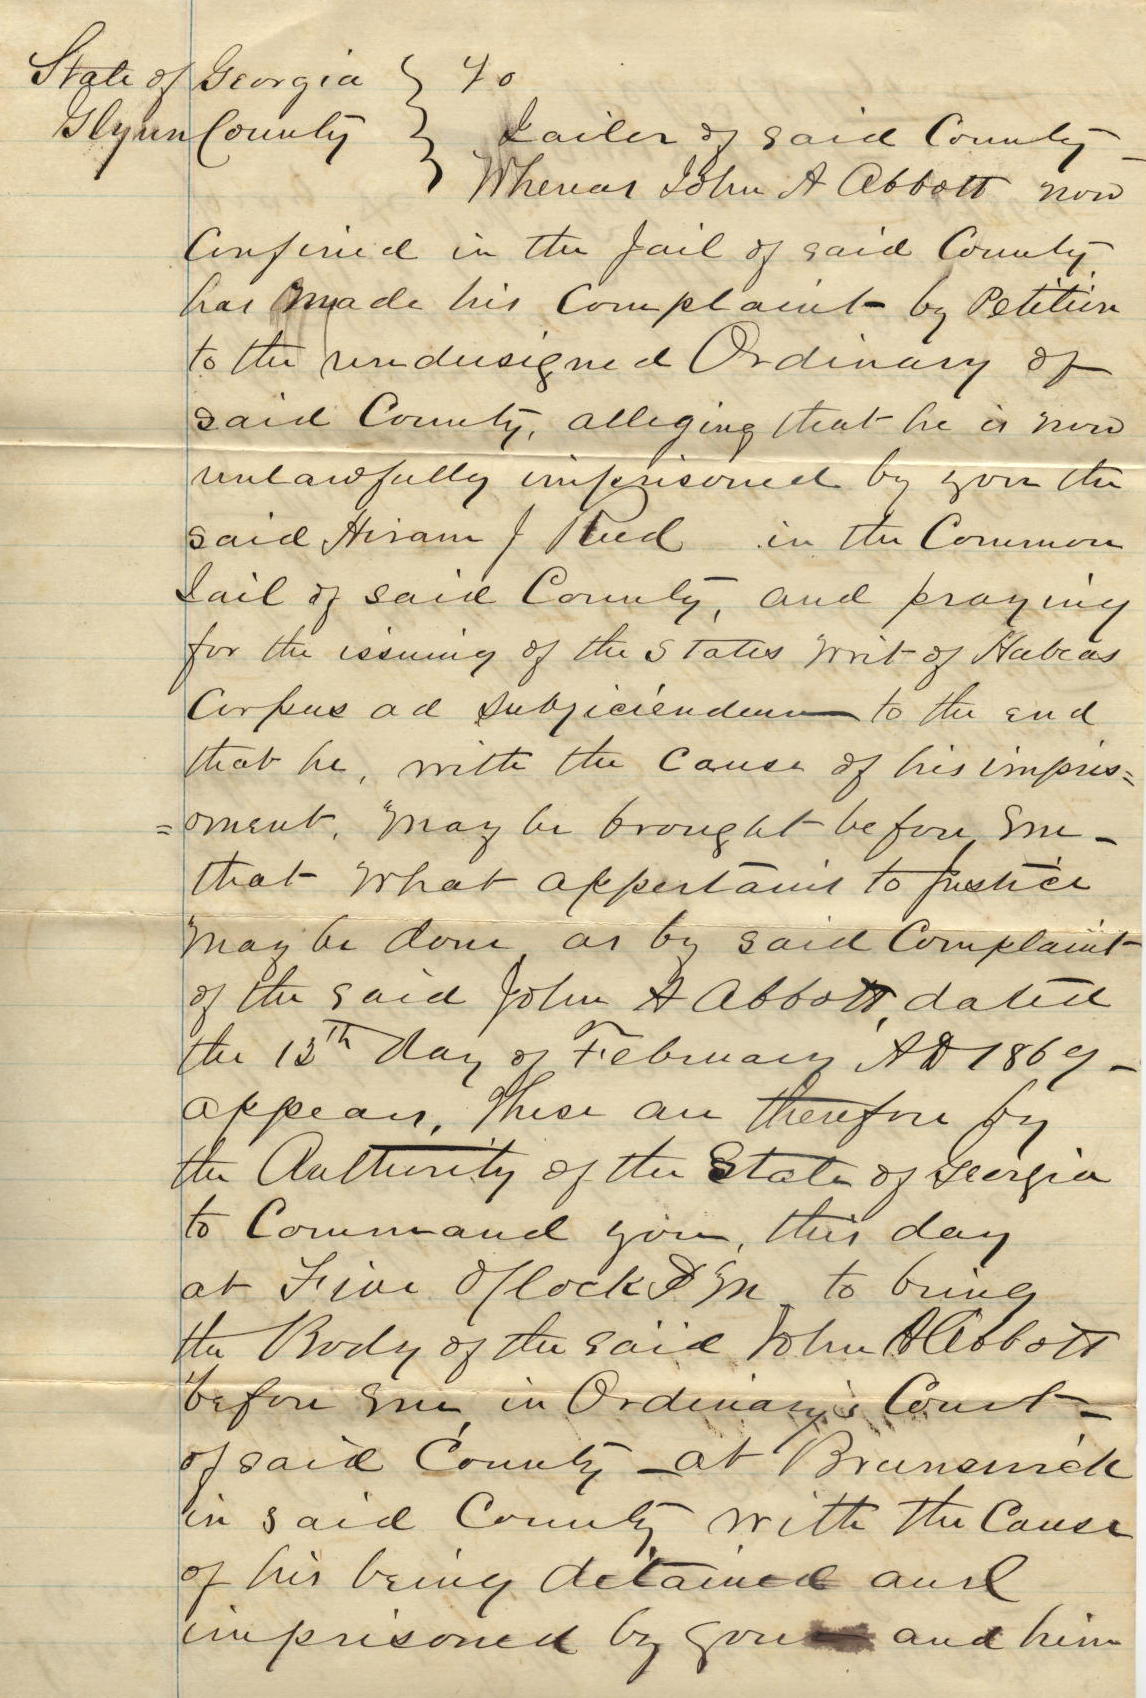 State of Georgia } To
Glynn County } Jailer of said County
Whereas John A Abbott now
Confined in the Jail of said County
has made his Complaint by Petition
to the undersigned Ordinary of
said County, alleging that he is now
unlawfully imprisoned by you the
said Hiram J Reed in the Common
Jail of said County, and praying
for the issuing of the States Writ of Habeas
Corpus ad subjiciendum to the end
that he, with the Cause of his impris=
=onment, May be brought before me -
that what appertains to Justice
May be done, as by said Complaint
of the said John A Abbott, dated
the 13th day of February AD 1869 -
appears, These are therefore by
the Authority of the State of Georgia
to Command you, this day
at Five O'clock P M to bring
the Body of the said John A Abbott
before me, in Ordinary's Court -
of said County - at Brunswick
in said County, with the Cause
of his being detained and
imprisoned by you and him